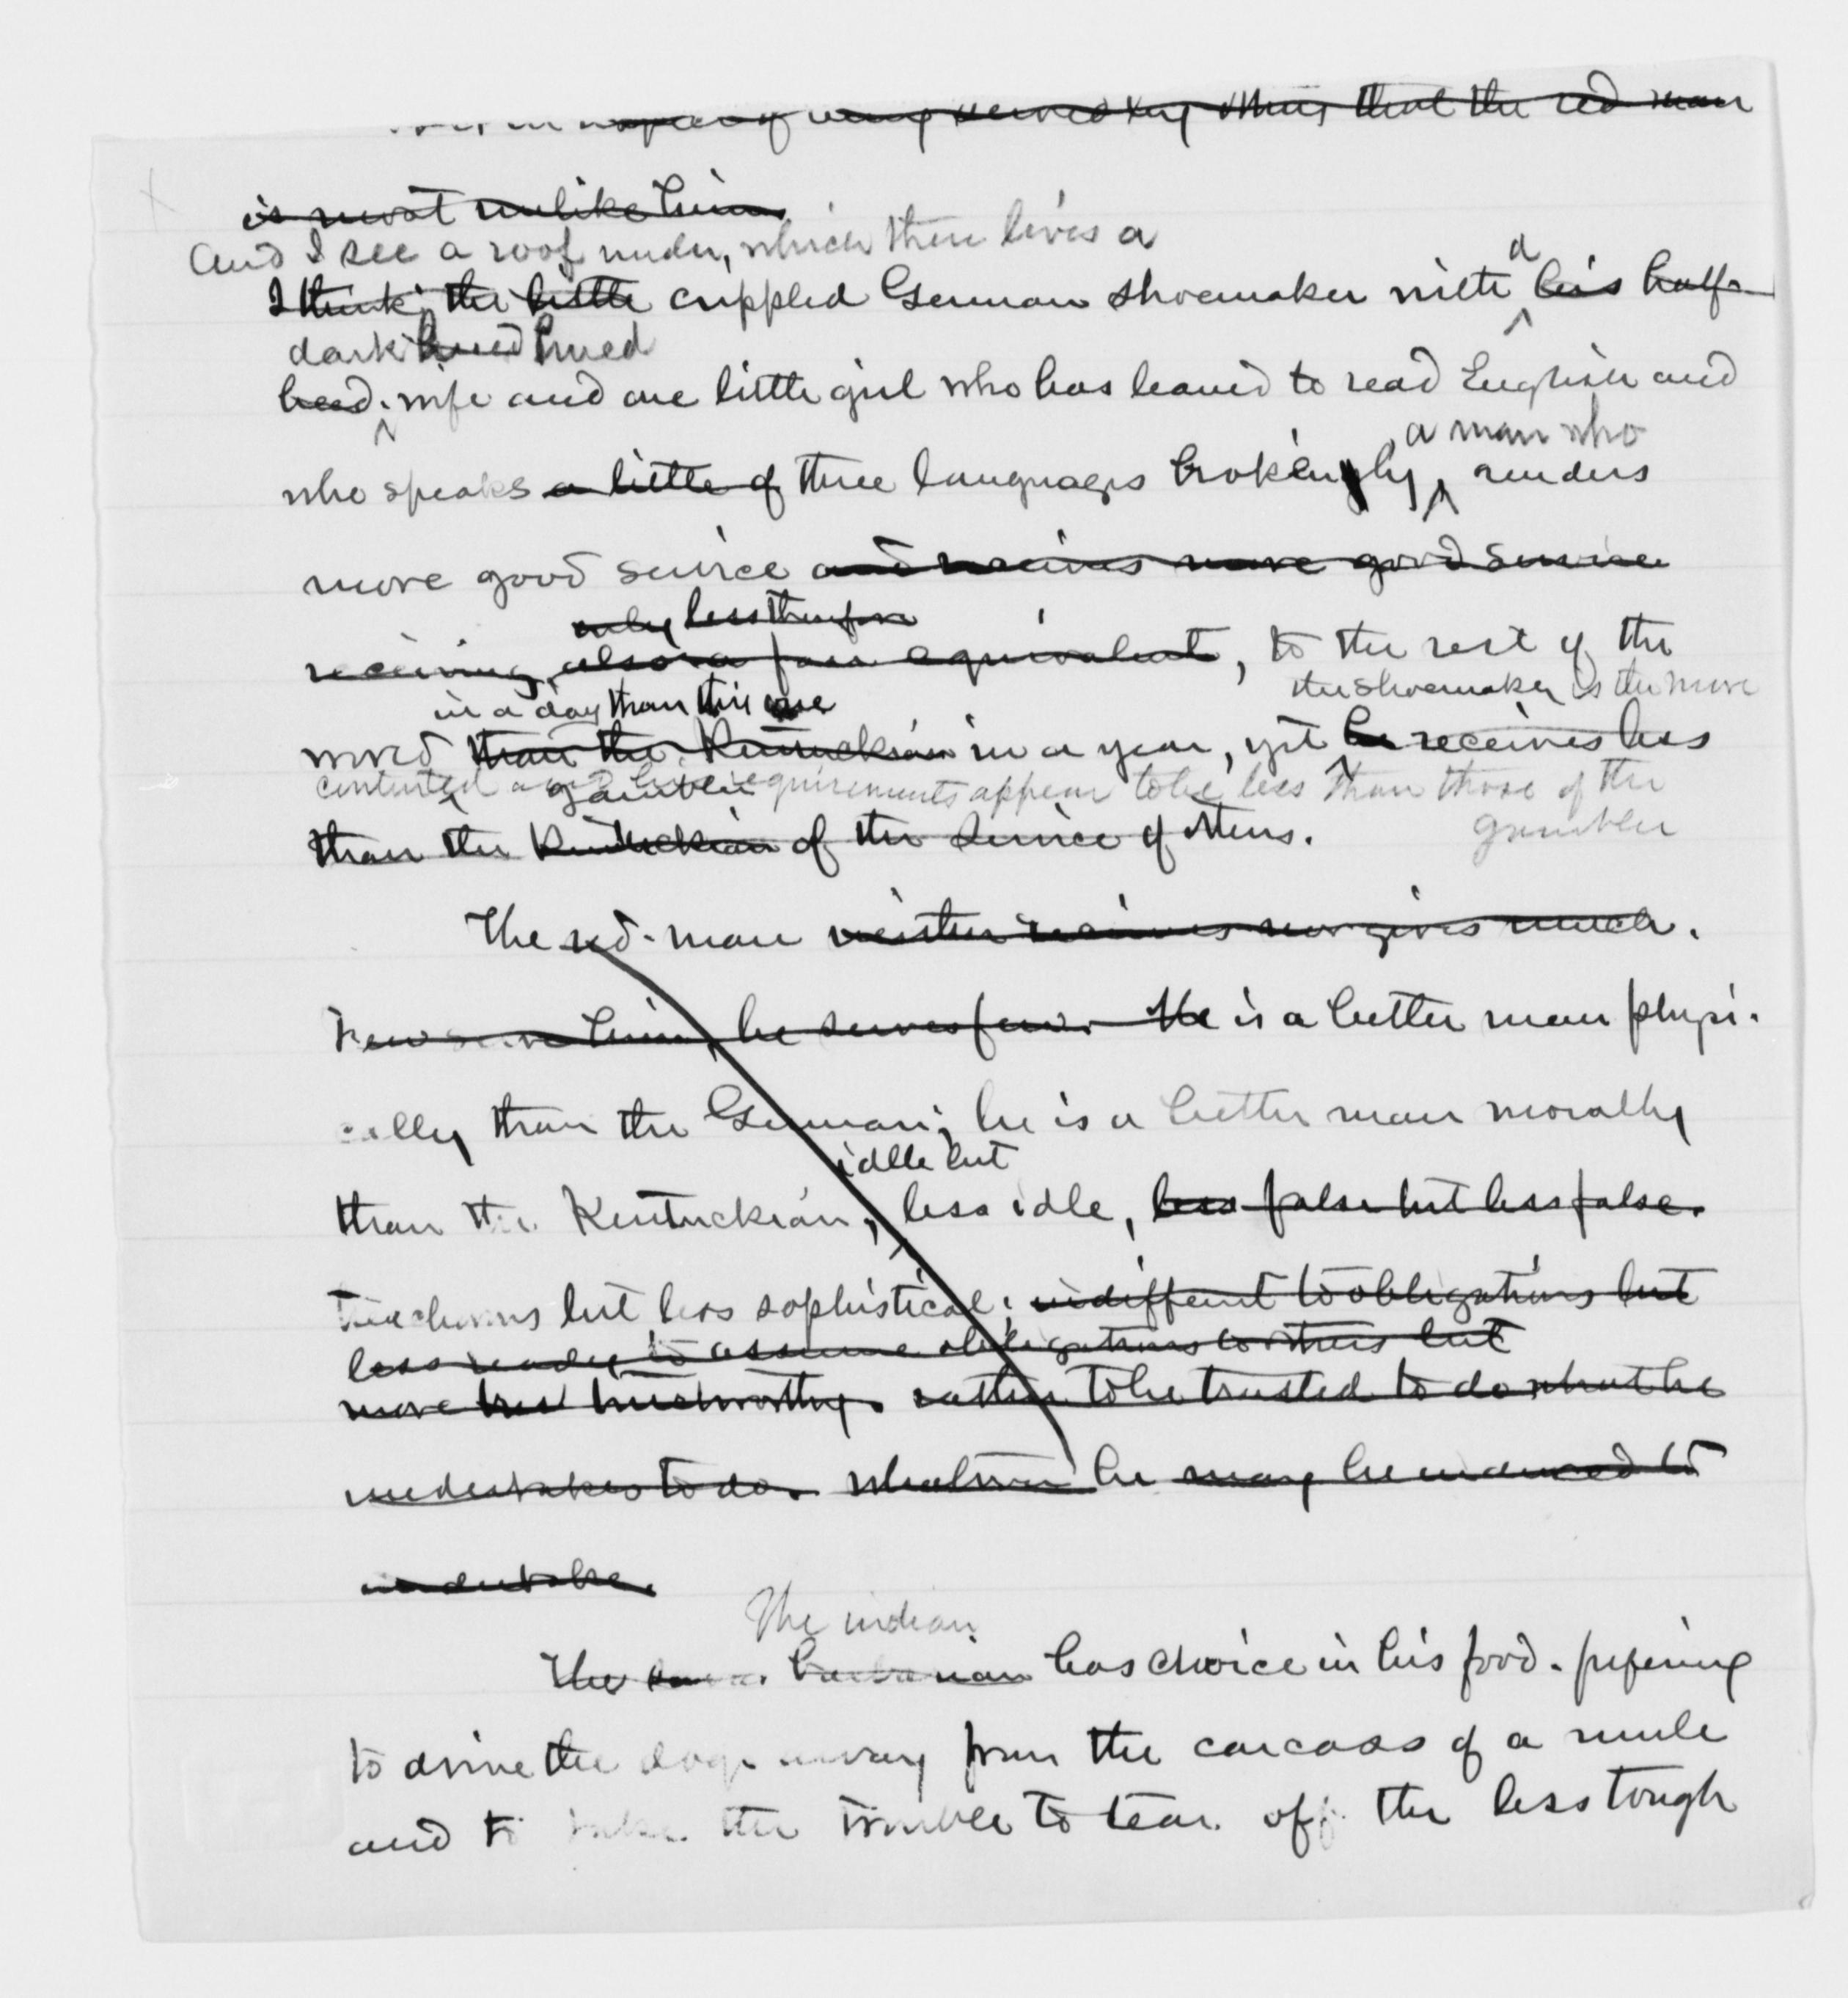 of being served by others that the red man
is most unlike him
and I see a roof under, which there lives a
I think the little crippled German shoemaker with a his half-
dark hued hued
breed wife and one little girl who has learned to read English and
a man who
who speaks a little of three languages brokenly, renders
more good service and receives more good service
only less therefore
receiving also a fair equivalent, to the rest of the
in a day than this one the shoemaker is the more
world than the Kentuckian in a year, yet he receives less
contented and his requirements appear to be less than those of the
gambler
than the Kentuckian of the service of others. gambler
The red-man neither receives nor gives much.
Few serve him, he serves few. He is a better man physi-
cally than the German; he is a better man morally
idle but
than the Kentuckian, less idle, less false but less false.
treacherous but less sophistical; indifferent to obligations but
less ready to assume obligations to others but
more trustworthy. rather to be trusted to do what he
undertakes to do. whatever he may be induced to
undertake.
The indian
The barbarian has choice in his food - prefering
to drive the dogs away from the carcass of a mule
and to take the trouble to tear off the less tough